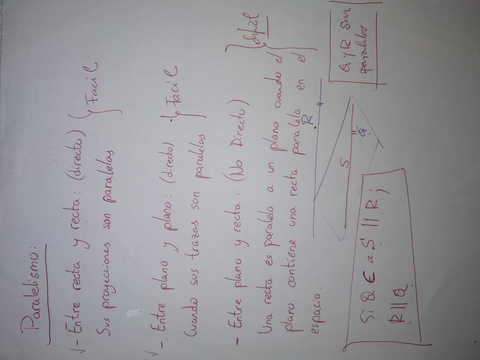 Paralelismo:
√ - Entre recta y recta: (directo) } Facil
Sus proyecciones son paralelas
√ - Entre plano y plano: (directo) } Facil
Cuando sus trazas son paralelas
- Entre plano y recta: (No Directo) } dificil
Una recta es paralela a un plano cuando el
plano contiene una recta paralela en el
espacio.
R
S
Q
Si Q ∈ a S || R;
R || Q
Q y R son
paralelos